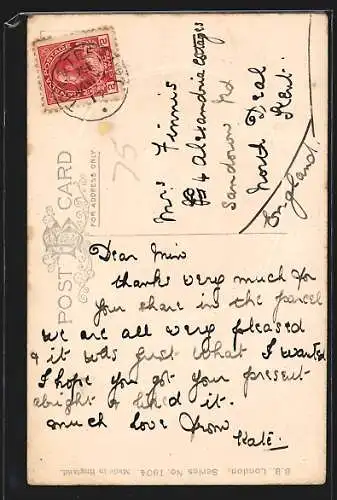 POST CARD
FOR ADDRESS ONLY
75
Mrs Finnis
4 Alexandria Cottages
Sandown Rd
North Deal
Kent.
England.
Dear Min
thanks very much for
your share in the parcel
we are all very pleased
& it was just what I wanted
I hope you got your present
alright & liked it.
much love from
Kate.
B.B. London. Series No. 1904. Made in England.